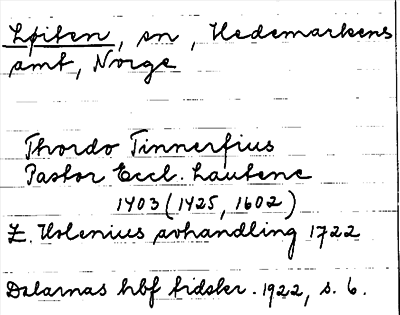 Løiten, sn, Hedemarkens
amt, Norge
Thordo Tinnerfius
Pastor Eccl. Lautene
1403 (1425, 1602)
E. Holenius avhandling 1722
Dalarnas hbf tidskr. 1922, s. 6.